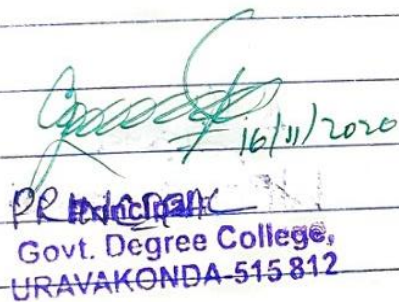 16/11/2020
PRINCIPAL
Principal
Govt. Degree College,
URAVAKONDA-515 812